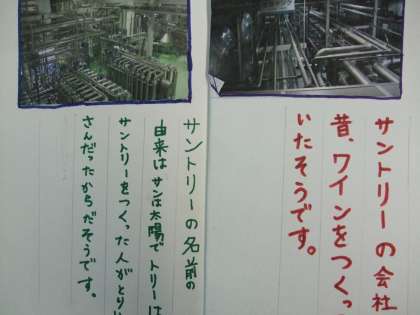 サントリーの会社
昔、ワインをつくっ
いたそうです。
サントリーの名前の
由来はサンは太陽でトリーは
サントリーをつくった人がとりい
さんだったからだそうです。